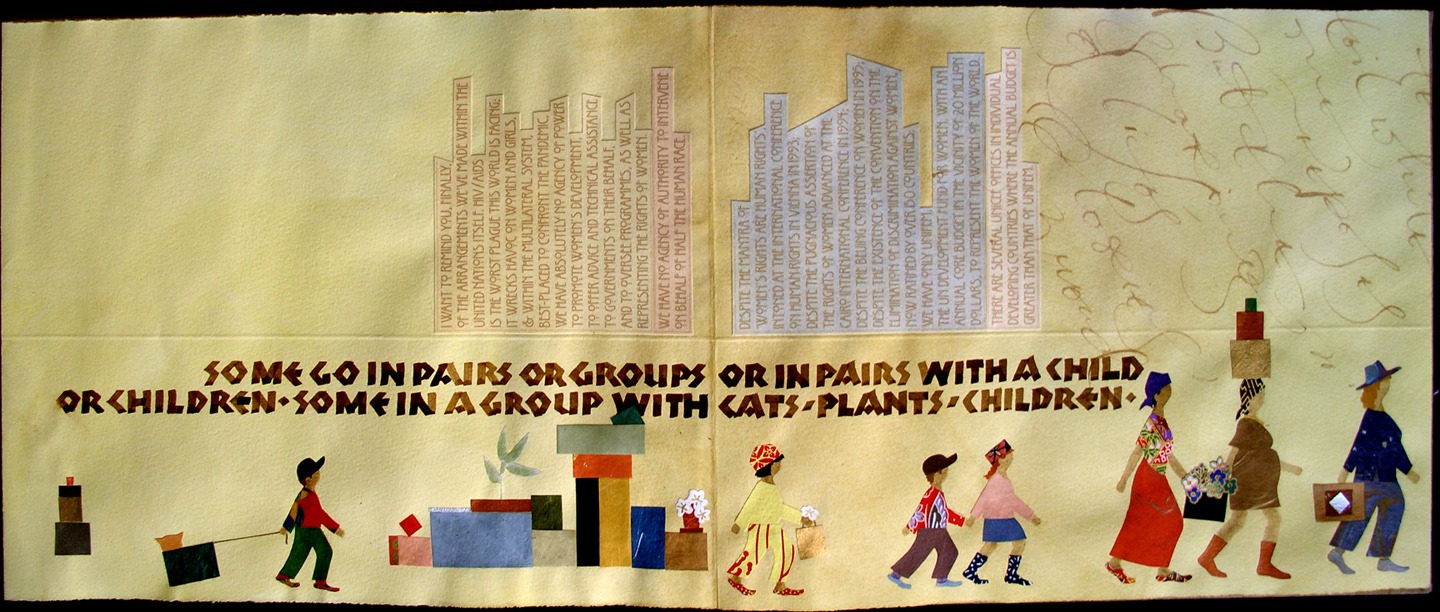 I WANT TO REMIND YOU, FINALLY,
OF THE ARRANGEMENTS WE'VE MADE WITHIN THE
UNITED NATIONS ITSELF. HIV/AIDS
IS THE WORST PLAGUE THIS WORLD IS FACING;
IT WRECKS HAVOC ON WOMEN AND GIRLS,
& WITHIN THE MULTILATERAL SYSTEM,
BEST-PLACED TO CONFRONT THE PANDEMIC,
WE HAVE ABSOLUTELY NO AGENCY OF POWER
TO PROMOTE WOMEN'S DEVELOPMENT,
TO OFFER ADVICE AND TECHNICAL ASSISTANCE
TO GOVERNMENTS ON THEIR BEHALF,
AND TO OVERSEE PROGRAMMES, AS WELL AS
REPRESENTING THE RIGHTS OF WOMEN.
WE HAVE NO AGENCY OF AUTHORITY TO INTERVENE
ON BEHALF OF HALF THE HUMAN RACE.
DESPITE THE MANTRA OF
'WOMEN'S RIGHTS ARE HUMAN RIGHTS',
INTONED AT THE INTERNATIONAL CONFERENCE
ON HUMAN RIGHTS IN VIENNA IN 1993;
DESPITE THE PUGNACIOUS ASSERTION OF
THE RIGHTS OF WOMEN ADVANCED AT THE
CAIRO INTERNATIONAL CONFERENCE IN 1994;
DESPITE THE BEIJING CONFERENCE ON WOMEN IN 1995;
DESPITE THE EXISTENCE OF THE CONVENTION ON THE
ELIMINATION OF DISCRIMINATION AGAINST WOMEN,
NOW RATIFIED BY OVER 150 COUNTRIES;
WE HAVE ONLY UNIFEM,
THE UN DEVELOPMENT FUND FOR WOMEN, WITH AN
ANNUAL CORE BUDGET IN THE VICINITY OF 20 MILLION
DOLLARS, TO REPRESENT THE WOMEN OF THE WORLD.
THERE ARE SEVERAL UNICEF OFFICES IN INDIVIDUAL
DEVELOPING COUNTRIES WHERE THE ANNUAL BUDGET IS
GREATER THAN THAT OF UNIFEM.
SOME GO IN PAIRS OR GROUPS OR IN PAIRS WITH A CHILD
OR CHILDREN · SOME IN A GROUP WITH CATS - PLANTS - CHILDREN ·